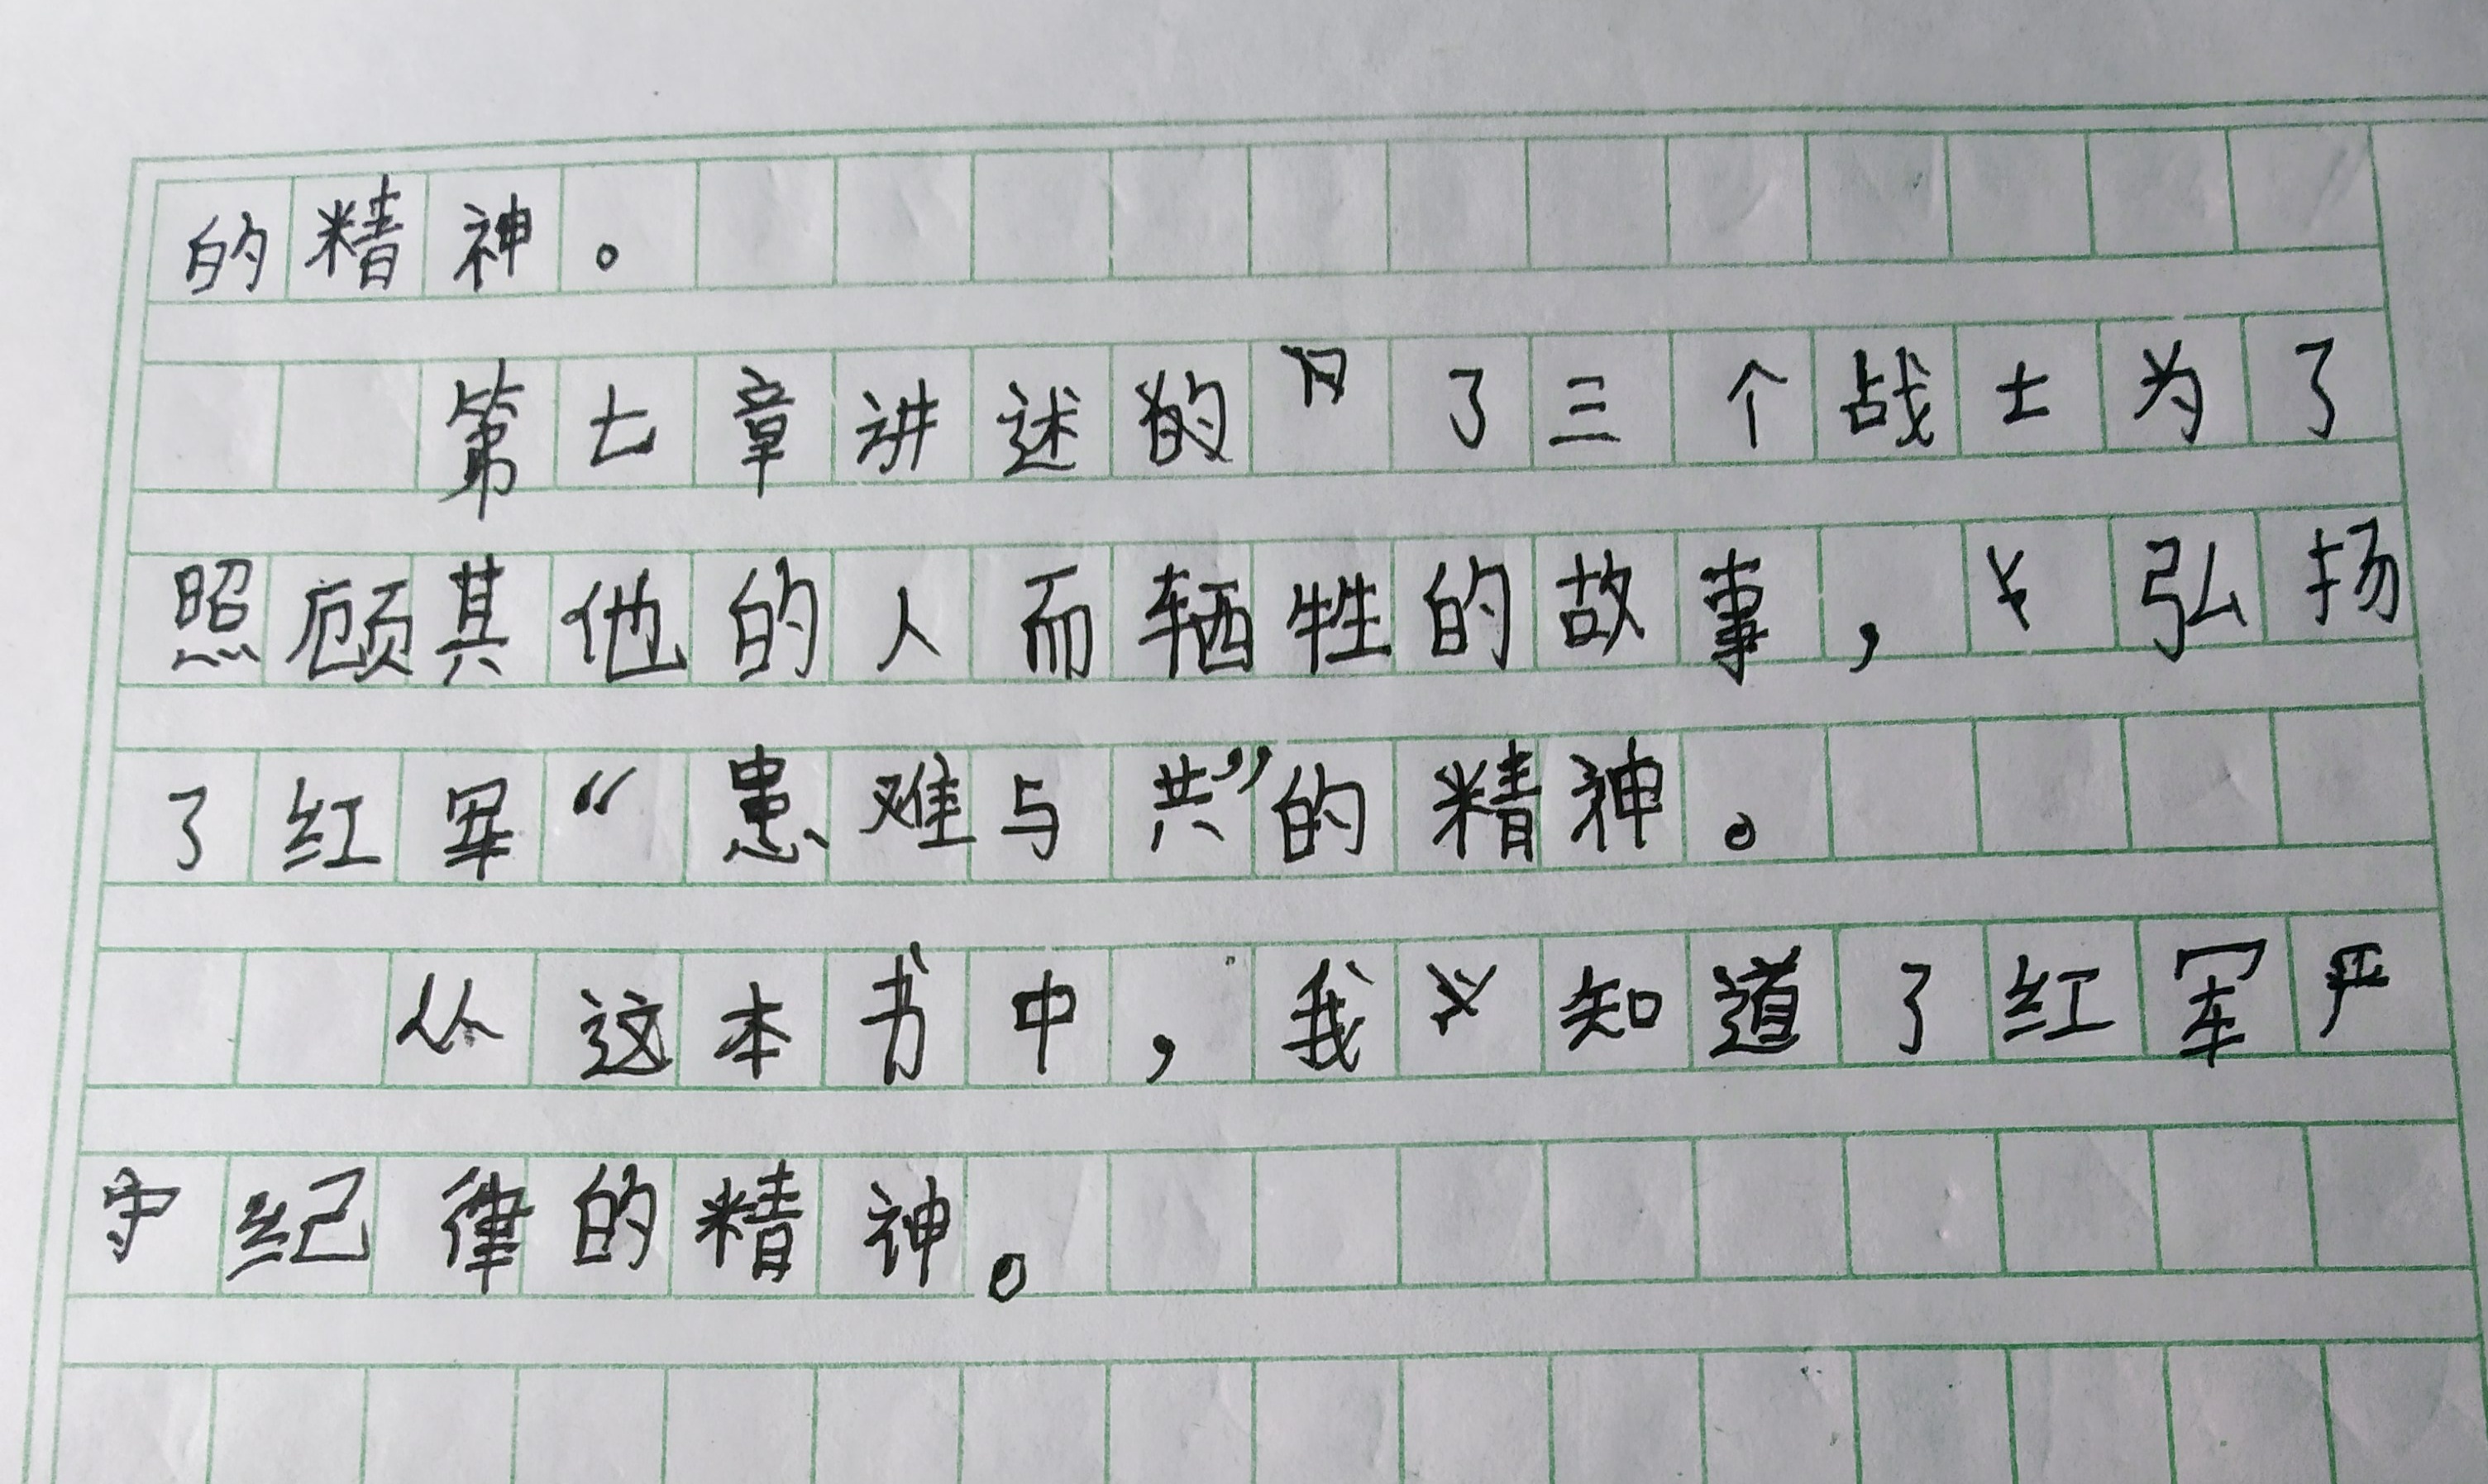 的精神。
第七章讲述的了三个战士为了
照顾其他的人而牺牲的故事，弘扬
了红军“患难与共”的精神。
从这本书中，我知道了红军严
守纪律的精神。